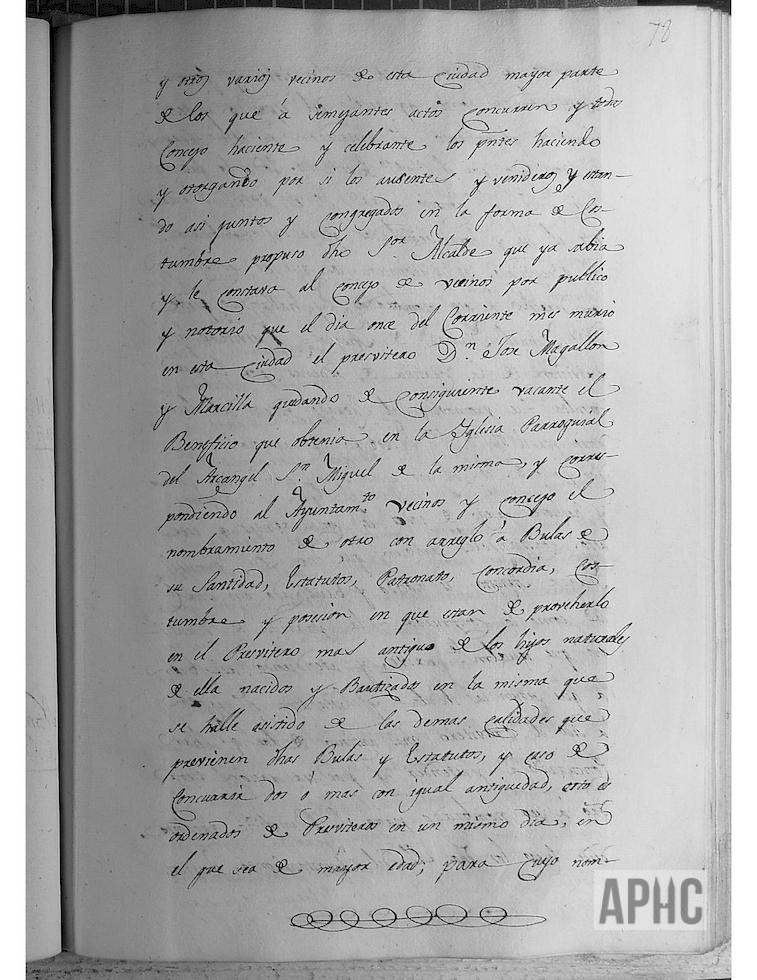 78
y otros varios vecinos de esta Ciudad mayor parte
de los que á semejantes actos concurren y todo
Concejo haciente y celebrante los pntes haciendo
y otorgando por si los ausentes y venideros y estan-
do asi juntos y congregados en la forma de Cos-
tumbre propuso dho Sor. Alcalde que ya sabia
y le constava al concejo de vecinos por publico
y notorio que el dia once del Corriente mes murio
en esta Ciudad el presvitero Dn. Jose Magallon
y Marcilla quedando de consiguiente vacante el
Beneficio que obtenia en la Iglesia Parroquial
del Arcangel Sn. Miguel de la misma, y corres-
pondiendo al Ayuntamto. vecinos y concejo el
nombramiento de otro con arreglo á Bulas de
su Santidad, Estatutos, Patronato, Concordia, Cos-
tumbre y posesion en que estan de proveherlo
en el Presvitero mas antiguo de los hijos naturales
de ella nacidos y Bautizados en la misma que
se halle asistido de las demas calidades que
previenen dhas Bulas y Estatutos, y caso de
Concurrir dos ó mas con igual antiguedad, esto es
ordenados de Presviteros en un mismo dia, en
el que sea de mayor edad; para cuyo nom-
APHC